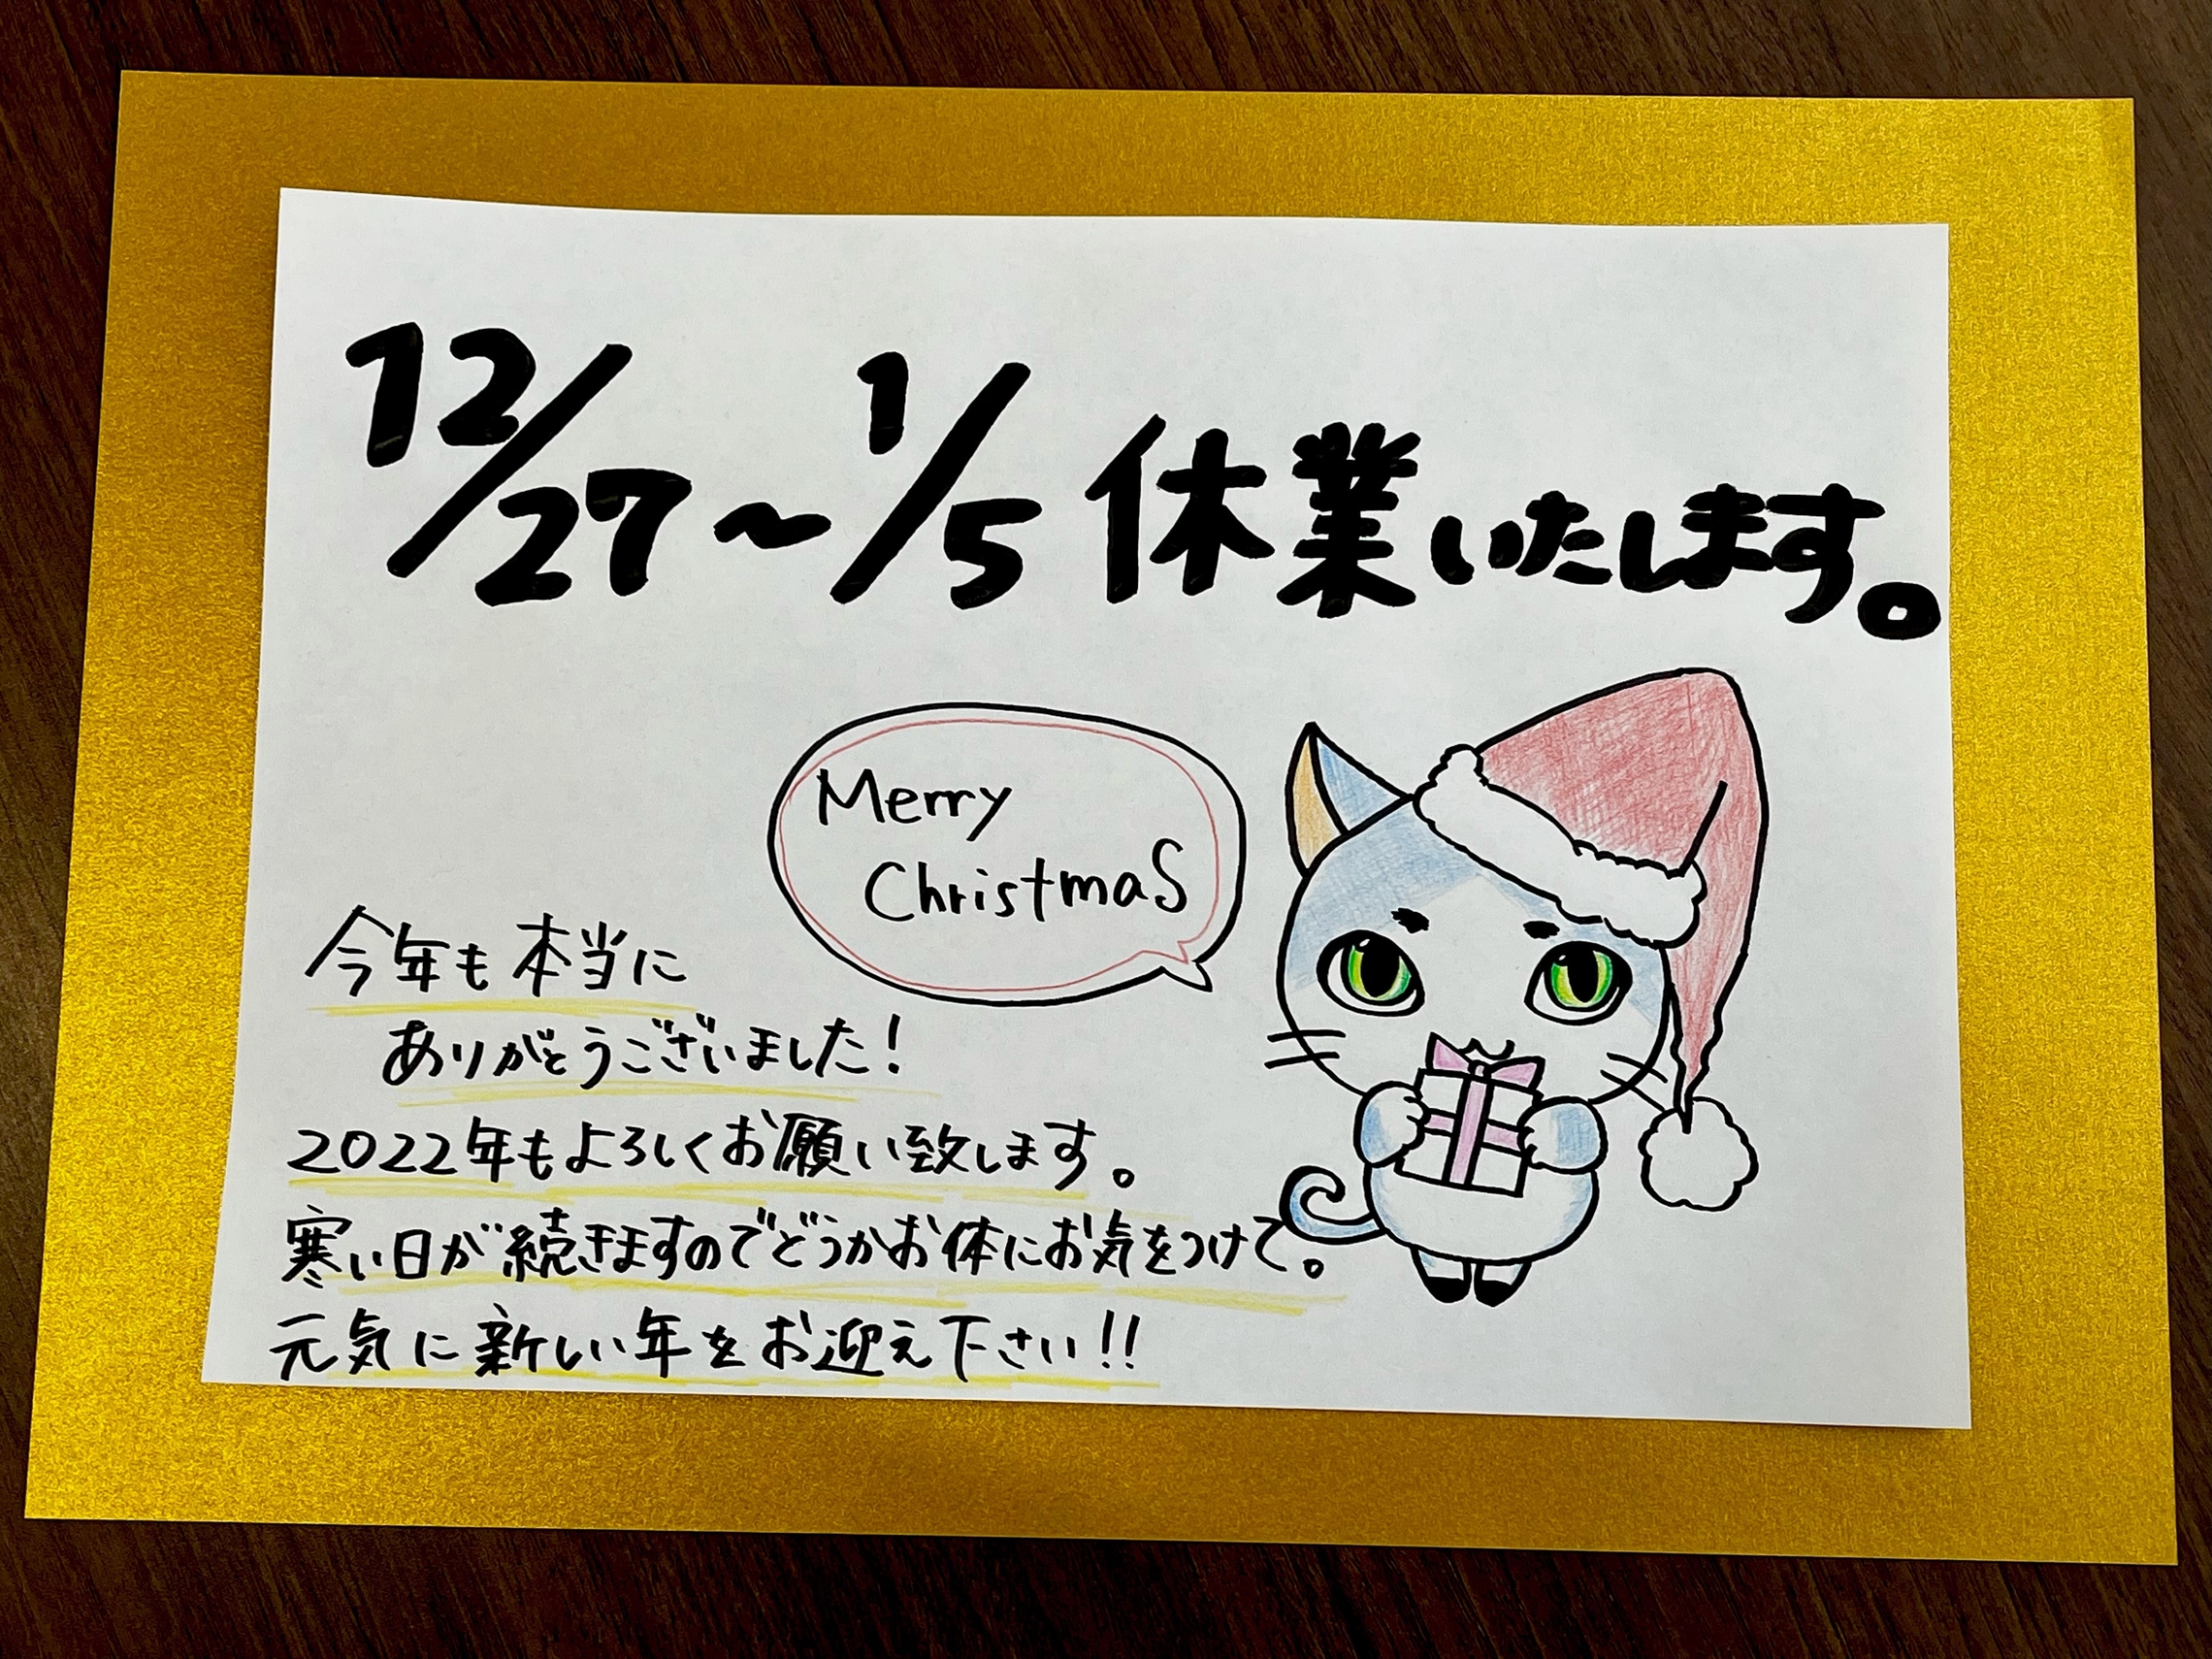 12/27〜1/5 休業いたします。
Merry
Christmas
今年も本当に
ありがとうございました!
2022年もよろしくお願い致します。
寒い日が続きますのでどうかお体にお気をつけて。
元気に新しい年をお迎え下さい!!